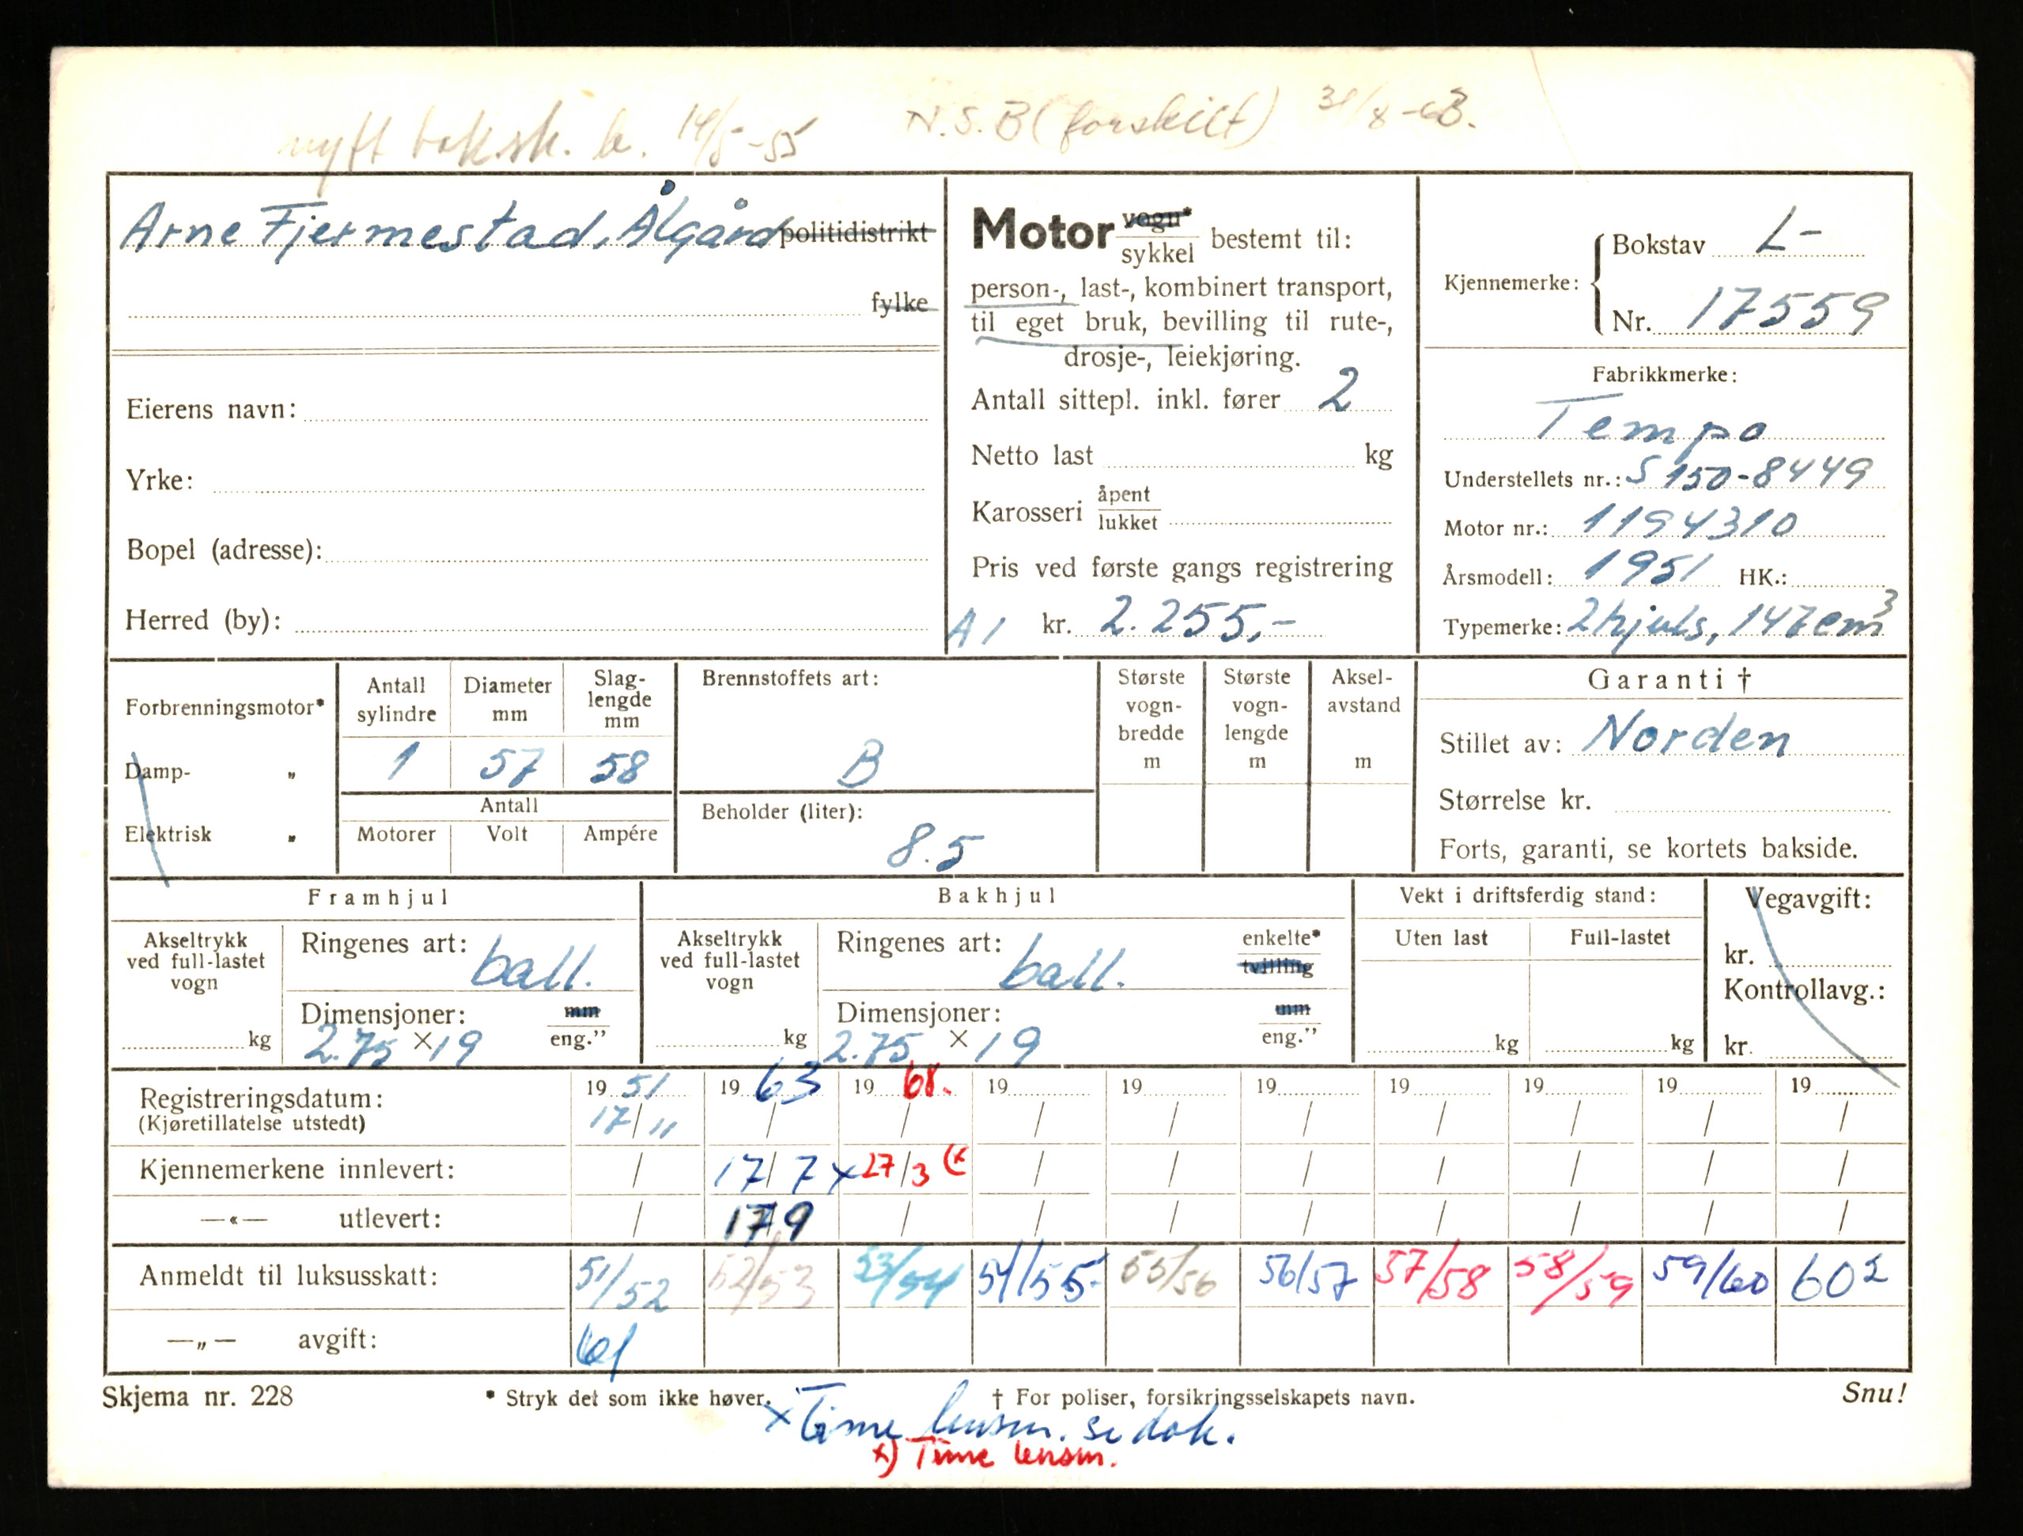 nytt baksk. b. 14/5-55 N.S.B (forskilt) 31/8-63.
Arne Fjermestad, Ålgård politidistrikt
fylke
Eierens navn:
Yrke:
Bopel (adresse):
Herred (by):
Motor vogn* / sykkel bestemt til:
person-, last-, kombinert transport,
til eget bruk, bevilling til rute-,
drosje-, leiekjøring.
Antall sittepl. inkl. fører 2
Netto last kg
Karosseri åpent / lukket
Pris ved første gangs registrering
A1 kr. 2.255,-
Kjennemerke: Bokstav L-
Nr. 17559
Fabrikkmerke:
Tempo
Understellets nr.: S 150-8449
Motor nr.: 1194310
Årsmodell: 1951 HK.:
Typemerke: 2hjuls, 147 cm3
Forbrenningsmotor*
Damp- „
Elektrisk „
Antall sylindre 1
Diameter mm 57
Slag-lengde mm 58
Antall
Motorer Volt Ampére
Brennstoffets art:
B
Beholder (liter):
8.5
Største vogn-bredde m
Største vogn-lengde m
Aksel-avstand m
Garanti †
Stillet av: Norden
Størrelse kr.
Forts, garanti, se kortets bakside.
Framhjul
Akseltrykk ved full-lastet vogn kg
Ringenes art: ball.
Dimensjoner: mm / eng."
2.75 × 19
Bakhjul
Akseltrykk ved full-lastet vogn kg
Ringenes art: ball. enkelte* / tvilling
Dimensjoner: mm / eng."
2.75 × 19
Vekt i driftsferdig stand:
Uten last Full-lastet
kg kg
Vegavgift:
kr.
Kontrollavg.:
kr.
Registreringsdatum: 19 51 19 63 19 68. 19 19 19 19 19 19 19
(Kjøretillatelse utstedt) 17/11 / / / / / / / / /
Kjennemerkene innlevert: / 17/7 x 27/3 (x / / / / / / /
—«— utlevert: / 17/9 / / / / / / / /
Anmeldt til luksusskatt: 51/52 52/53 53/54 54/55 55/56 56/57 57/58 58/59 59/60 60 2
—„— avgift: 61
Skjema nr. 228 * Stryk det som ikke høver. † For poliser, forsikringsselskapets navn. Snu!
x Time lensm. se dok.
x) Time lensm.